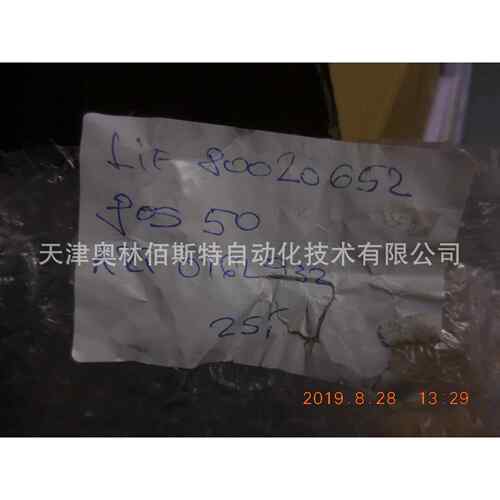 Lif 80020652
pos 50
天津奥林佰斯特自动化技术有限公司
25
2019.8.28 13:29